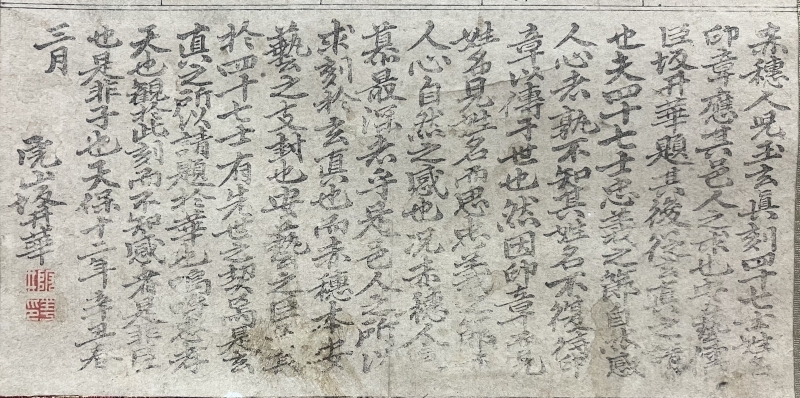 赤穗人児玉玄真刻四十七士姓名
印章應其邑人之求也安藝儒
臣坂井華題其後從玄真之請
也夫四十七士忠義之節自然感
人心者孰不知其姓名不復待印
章以傳于世也然因印章而見
姓名見姓名而思忠義之節
人心自然之感也况赤穗人
慕最深者乎是邑人之所以
求刻於玄真也而赤穗本安
藝之支封也安藝之臣
於四十七士有先世之契焉是玄
真之所以請題於華也嗚呼忠孝
天也観此刻而不知感者是非臣
也是非子也天保十二年辛丑春
三月
虎山坂井華